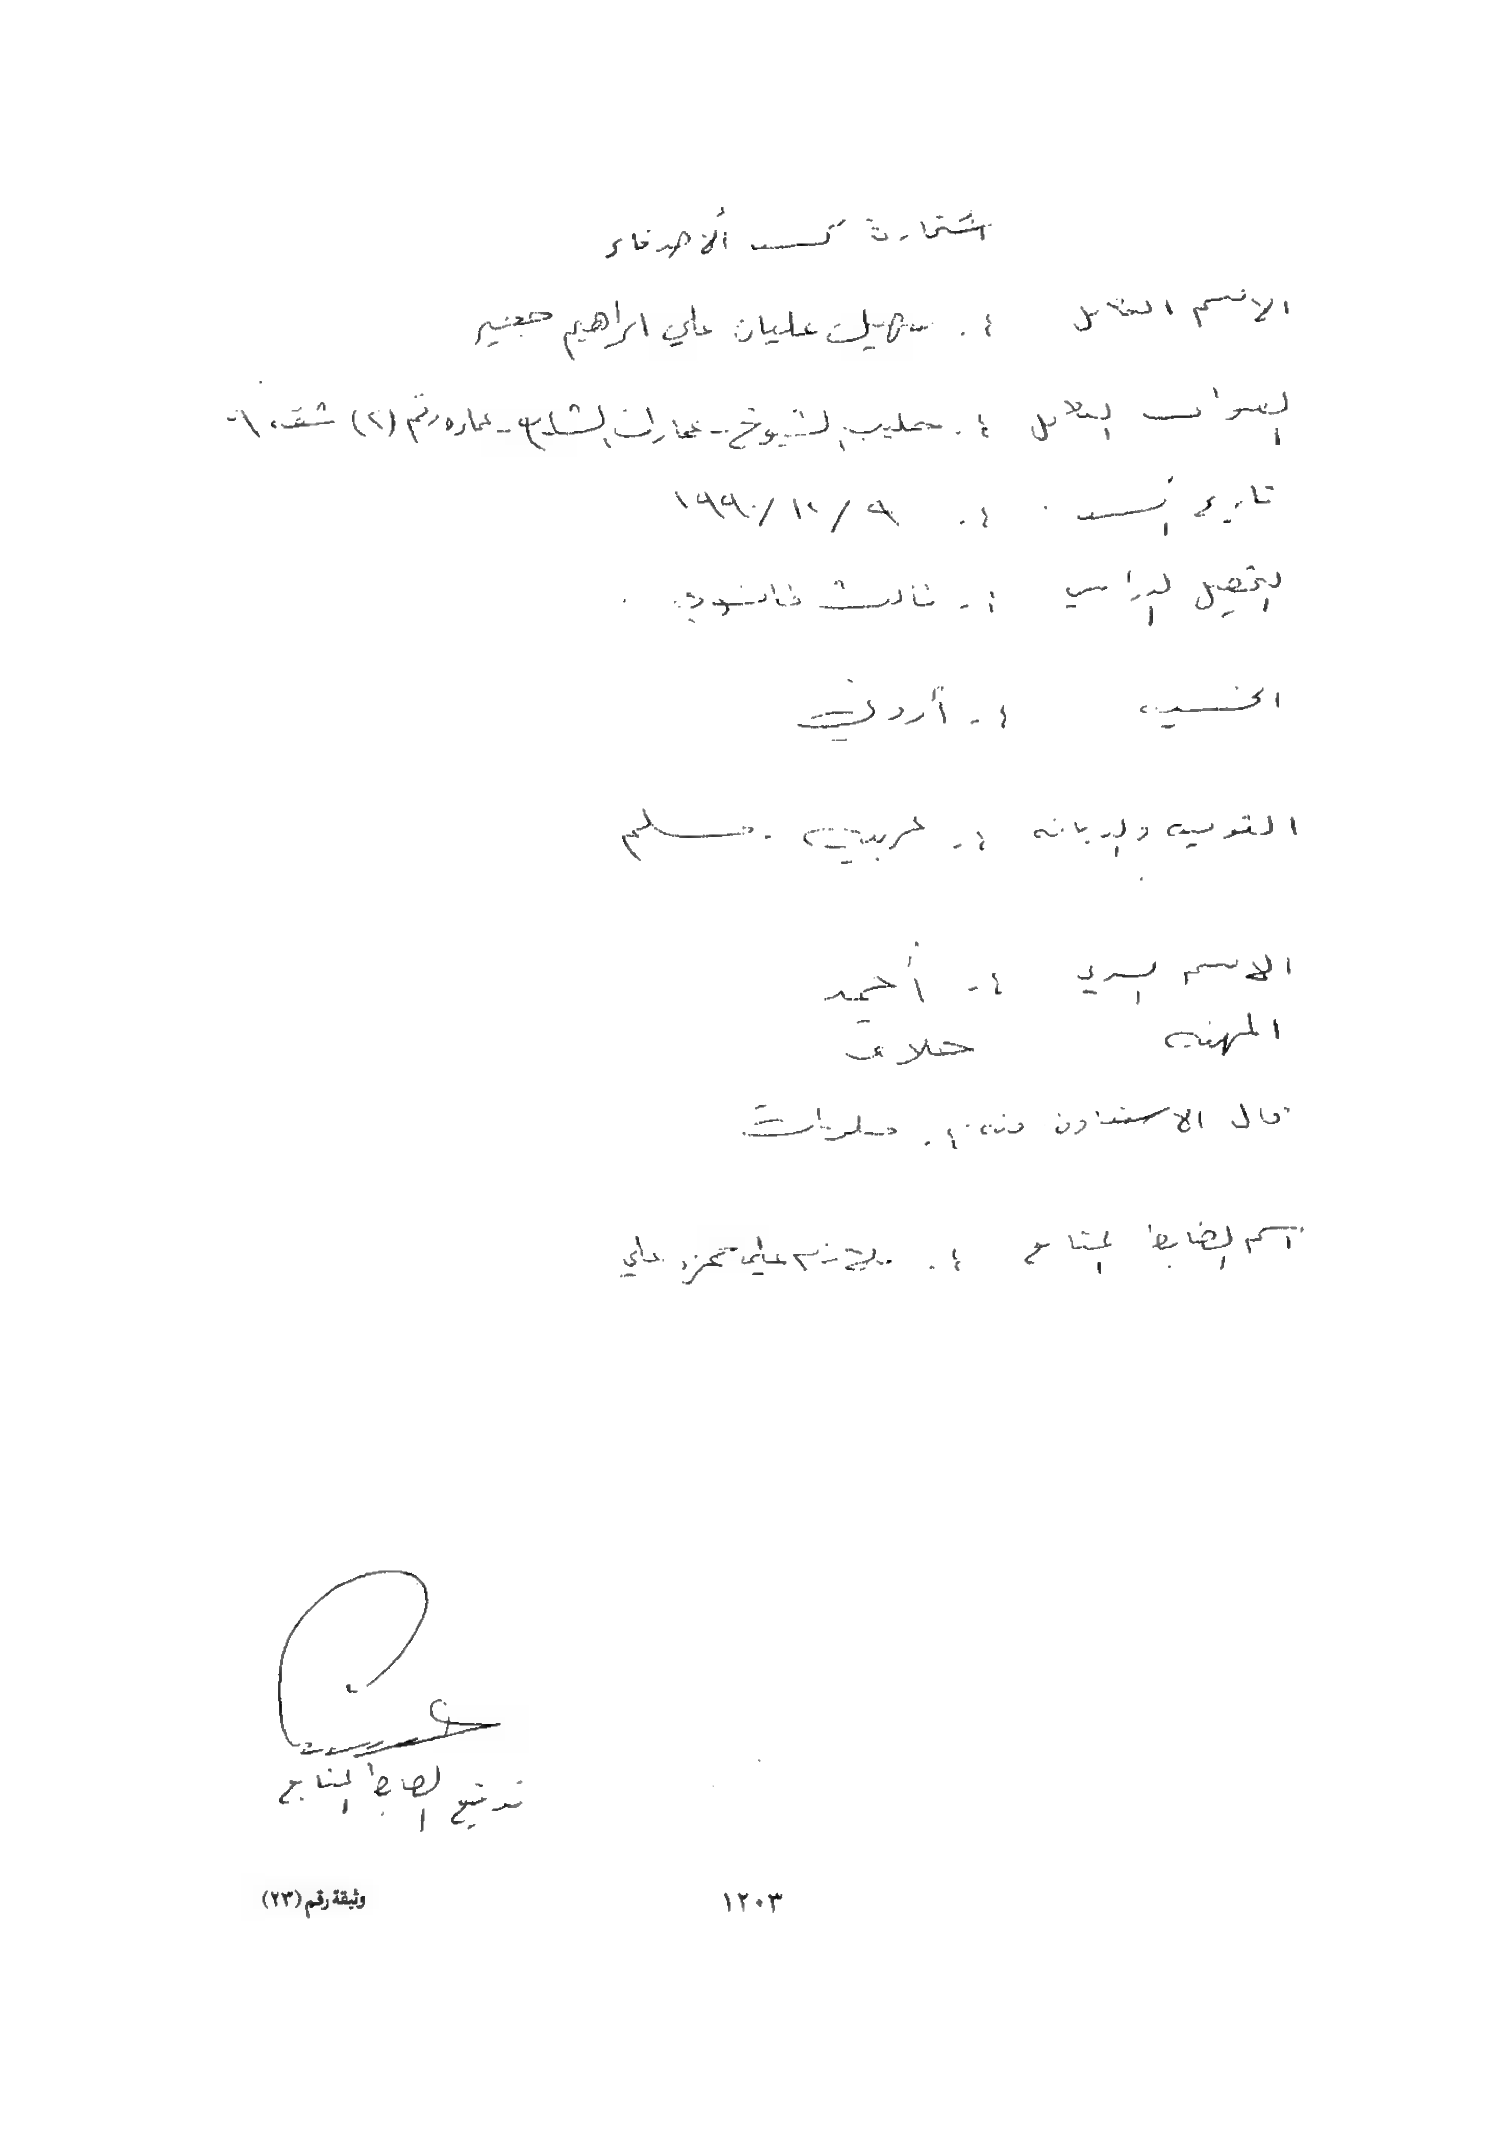 استمارة كسب الأصدقاء
الاسم الكامل :. سهيل عليان علي ابراهيم جعفير
العنوان الكامل :. حليب الشيوخ - عمارات السلام - عماره رقم (٢) شقة ٦
تاريخ الكسب :. ٩ / ١٠ / ١٩٩٠
التحصيل الدراسي :. ثالث ثانوي
الجنسية :. أردني
القومية والديانة :. عربية - مسلم
الاسم السري :. أحمد
المهنة حلاق
مجال الاستفادة منه :. معلومات
اسم الضابط المتابع :. ملازم علي حمزه علي
توقيع الضابط المتابع
وثيقة رقم (٢٣)
١٢٠٣